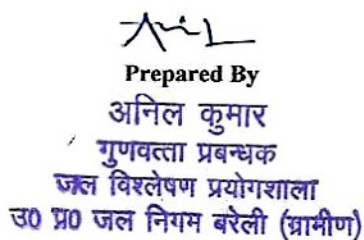 Prepared By
अनिल कुमार
गुणवत्ता प्रबन्धक
जल विश्लेषण प्रयोगशाला
उ0 प्र0 जल निगम बरेली (ग्रामीण)